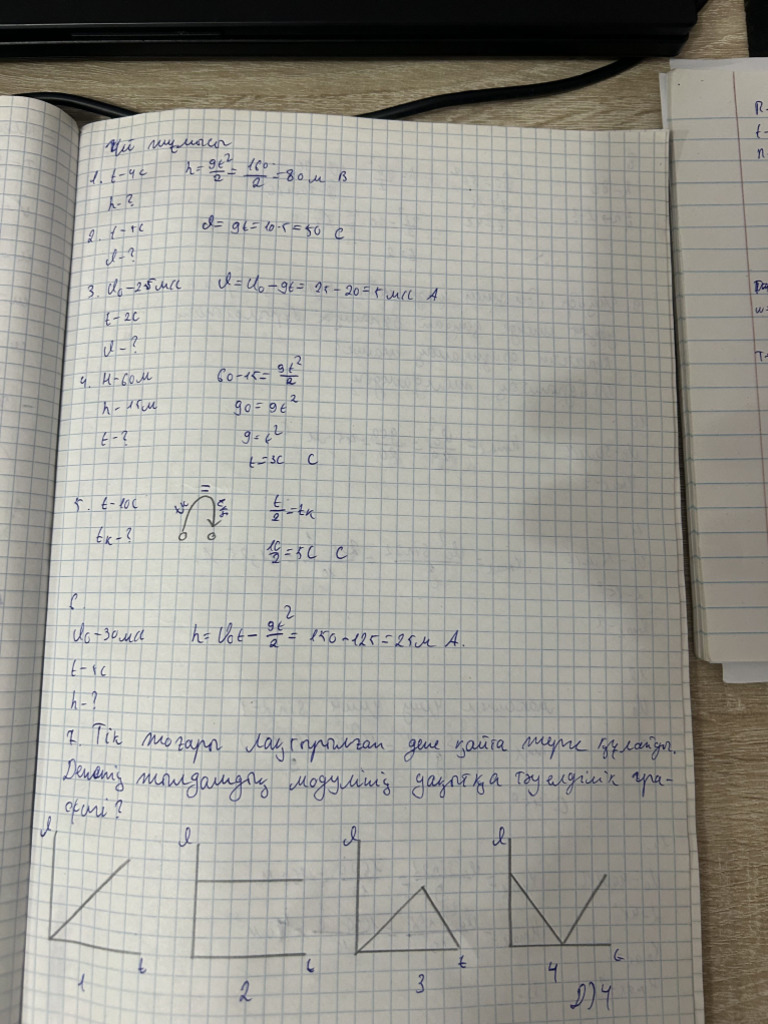 Үй жұмысы
1. t-4c h=gt²/2=160/2=80м В
h-?
2. t-5c υ=gt=10·5=50 С
υ-?
3. υ₀-25м/с υ=υ₀-gt=25-20=5м/с А
t-2c
υ-?
4. H-60м 60-15=gt²/2
h-15м 90=gt²
t-? 9=t²
t=3c С
5. t-10c t/2=tк
tк-? 10/2=5c С
6.
υ₀-30м/с h=υ₀t-gt²/2=150-125=25м А.
t-5c
h-?
7. Тік жоғары лақтырылған дене қайта жерге құлайды.
Дененің жылдамдық модулінің уақытқа тәуелділік гра-
фигі?
υ υ υ υ
t t t t
1 2 3 4
D)4